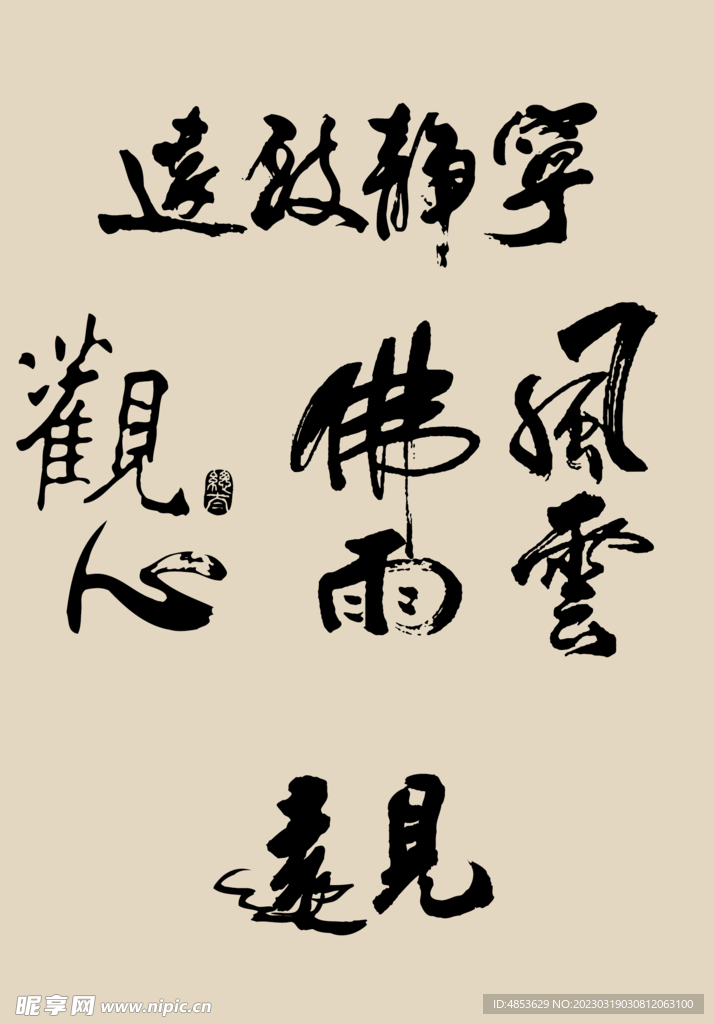 寧靜致遠
風雲
佛雨
觀心
遠見
昵享网 www.nipic.cn
ID:4853629 NO:20230319030812063100